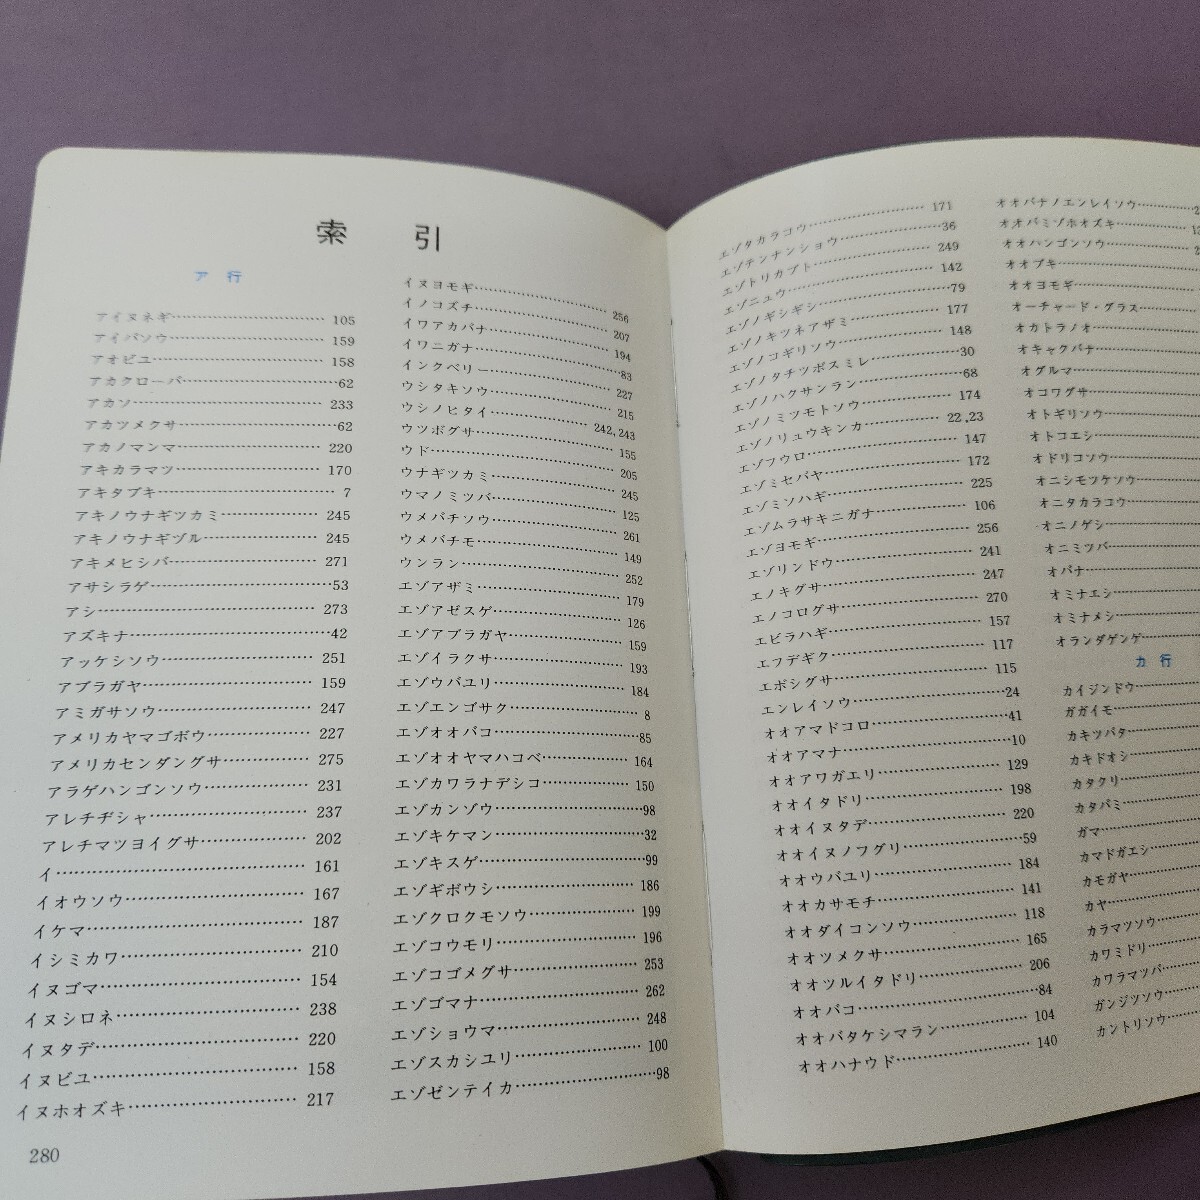 索 引
ア 行
アイヌネギ 105
アイバソウ 159
アオビユ 158
アカクローバ 62
アカソ 233
アカツメクサ 62
アカノマンマ 220
アキカラマツ 170
アキタブキ 7
アキノウナギツカミ 245
アキノウナギヅル 245
アキメヒシバ 271
アサシラゲ 53
アシ 273
アズキナ 42
アッケシソウ 251
アブラガヤ 159
アミガサソウ 247
アメリカヤマゴボウ 227
アメリカセンダングサ 275
アラゲハンゴンソウ 231
アレチヂシャ 237
アレチマツヨイグサ 202
イ 161
イオウソウ 167
イケマ 187
イシミカワ 210
イヌゴマ 154
イヌシロネ 238
イヌタデ 220
イヌビユ 158
イヌホオズキ 217
280
イヌヨモギ 256
イノコズチ 207
イワアカバナ 194
イワニガナ 83
インクベリー 227
ウシタキソウ 215
ウシノヒタイ 242,243
ウツボグサ 155
ウド 205
ウナギツカミ 245
ウマノミツバ 125
ウメバチソウ 261
ウメバチモ 149
ウンラン 252
エゾアザミ 179
エゾアゼスゲ 126
エゾアブラガヤ 159
エゾイラクサ 193
エゾウバユリ 184
エゾエンゴサク 8
エゾオオバコ 85
エゾオオヤマハコベ 164
エゾカワラナデシコ 150
エゾカンゾウ 98
エゾキケマン 32
エゾキスゲ 99
エゾギボウシ 186
エゾクロクモソウ 199
エゾコウモリ 196
エゾコゴメグサ 253
エゾゴマナ 262
エゾショウマ 248
エゾスカシユリ 100
エゾゼンテイカ 98
エゾタカラコウ 171
エゾテンナンショウ 36
エゾトリカブト 249
エゾニュウ 142
エゾノギシギシ 79
エゾノキツネアザミ 177
エゾノコギリソウ 148
エゾノタチツボスミレ 30
エゾノハクサンラン 68
エゾノミツモトソウ 174
エゾノリュウキンカ 22,23
エゾフウロ 147
エゾミセバヤ 172
エゾミソハギ 225
エゾムラサキニガナ 106
エゾヨモギ 256
エゾリンドウ 241
エノキグサ 247
エノコログサ 270
エビラハギ 157
エフデギク 117
エボシグサ 115
エンレイソウ 24
オオアマドコロ 41
オオアマナ 10
オオアワガエリ 129
オオイタドリ 198
オオイヌタデ 220
オオイヌノフグリ 59
オオウバユリ 184
オオカサモチ 141
オオダイコンソウ 118
オオツメクサ 165
オオツルイタドリ 206
オオバコ 84
オオバタケシマラン 104
オオハナウド 140
オオバナノエンレイソウ
オオバミゾホオズキ
オオハンゴンソウ
オオブキ
オオヨモギ
オーチャード・グラス
オカトラノオ
オキャクバナ
オグルマ
オコワグサ
オトギリソウ
オトコエシ
オドリコソウ
オニシモツケソウ
オニタカラコウ
オニノゲシ
オニミツバ
オバナ
オミナエシ
オミナメシ
オランダゲンゲ
カ 行
カイジンドウ
ガガイモ
カキツバタ
カキドオシ
カタクリ
カタバミ
ガマ
カマドガエシ
カモガヤ
カヤ
カラマツソウ
カワミドリ
カワラマツバ
ガンジツソウ
カントリソウ